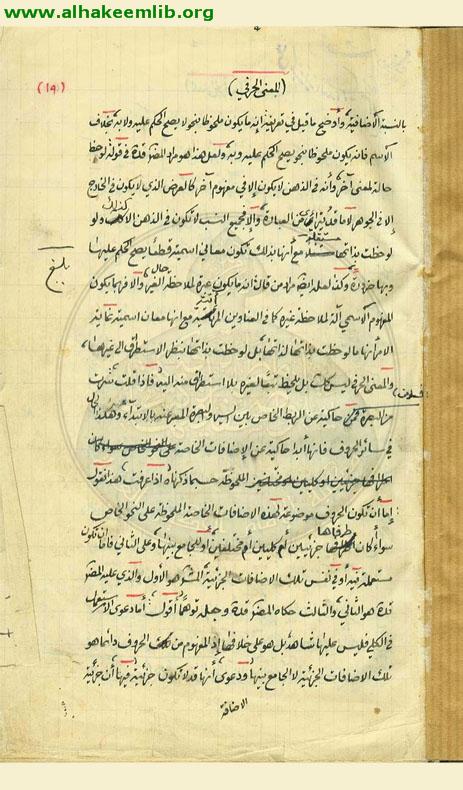 www.alhakeemlib.org
(١٩)
(المعنى الحرفي)
بالنسبة الاضافية وأوضح ما قيل في تعريفه انه ما يكون ملحوظا بنحو لا يصح الحكم عليه ولا به بخلاف
الاسم فانه يكون ملحوظا بنحو يصح الحكم عليه وبه ولعل هذا هو مراد المفسر قده في قوله لوحظ
حالة لمعنى آخر وأنه في الذهن لا يكون إلا في مفهوم آخر كالعرض الذي لا يكون في الخارج
إلا في الجوهر لا ما قد يتراءى من العبارة وإلا فجميع النسب لا تكون في الذهن إلا كذلك ولو
لوحظت بذاتها مستقلة مع أنها بذلك تكون معاني اسمية قطعا يصح الحكم عليها
وبها ضرورة وكذا لعله ايضا مراد من قال انه ما يكون عبرة لملاحظة حال الغير والا فربما يكون
المفهوم الاسمي آلة لملاحظة غيره كما في العناوين مع انها معان اسمية غاية
الامر أنها ما لوحظت بذاتها لذاتها بل لوحظت بذاتها بنظر الاستطراق الى غيرها
والمعنى الحرفي ليس كذلك بل يلحظ تبعا لغيره بلا استطراق منه اليه فاذا قلت سرت
من البصرة فمن حاكية عن الربط الخاص بين السير والبصرة المعبر عنه بالابتداء وهكذا
في سائر الحروف فانها أبدا حاكية عن الاضافات الخاصة
الملحوظة حسبما ذكرناه اذا عرفت هذا فنقول
إما أن تكون الحروف موضوعة لهذه الاضافات الخاصة الملحوظة على النحو الخاص
سواء كان طرفاها جزئيين أم كليين أم مختلفين أو للجامع بينها وعلى الثاني فاما أن تكون
مستعملة فيه أو في نفس تلك الاضافات الجزئية المشهور هو الأول والذي عليه المفسر
قده هو الثاني والثالث حكاه المفسر قده وجعله توهما أقول أما دعوى الاستعمال
في الكلي فليس عليها شاهد بل هو على خلافها إذ المفهوم من تلك الحروف دائما هو
تلك الاضافات الجزئية لا الجامع بينها ودعوى أنها قد لا تكون جزئية فيها أن جزئية
الاضافة
بلغ